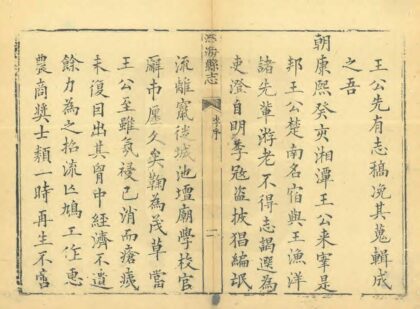 王公先有志稿况其蒐輯成
之吾
朝康熙癸亥湘潭王公来宰是
邦王公楚南名宿與王漁洋
諸先輩游老不得志謁選為
吏澄自明季冦盜披猖編氓
澄海縣志
序
一
流離竄徙城池壇廟學校官
廨市廛久矣鞠為茂草當
王公至雖氛祲已消而瘡痍
未復囙出其胷中經濟不遺
餘力為之招流亾鳩工作惠
農商奬士類一時再生不啻